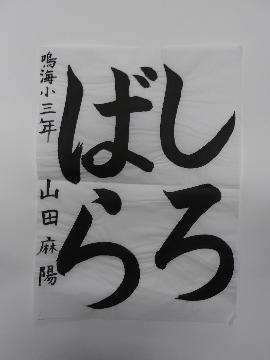 しろ
ばら
鳴海小三年 山田麻陽